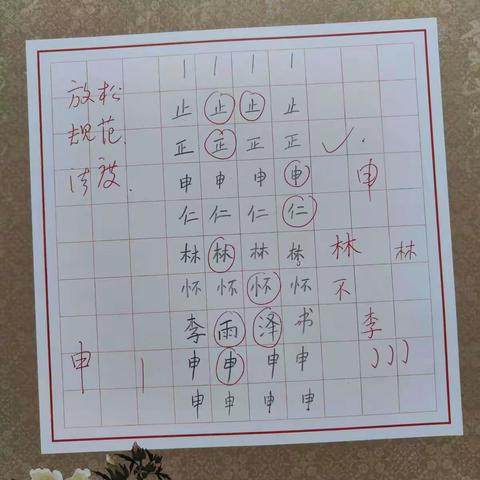 放松
规范
法度
丨丨丨丨
止止止止
正正正正
申申申申 申
仁仁仁仁
林林林林 林 林
怀怀怀怀 不
李雨泽书 李
申 丨 申申申申
申申申申